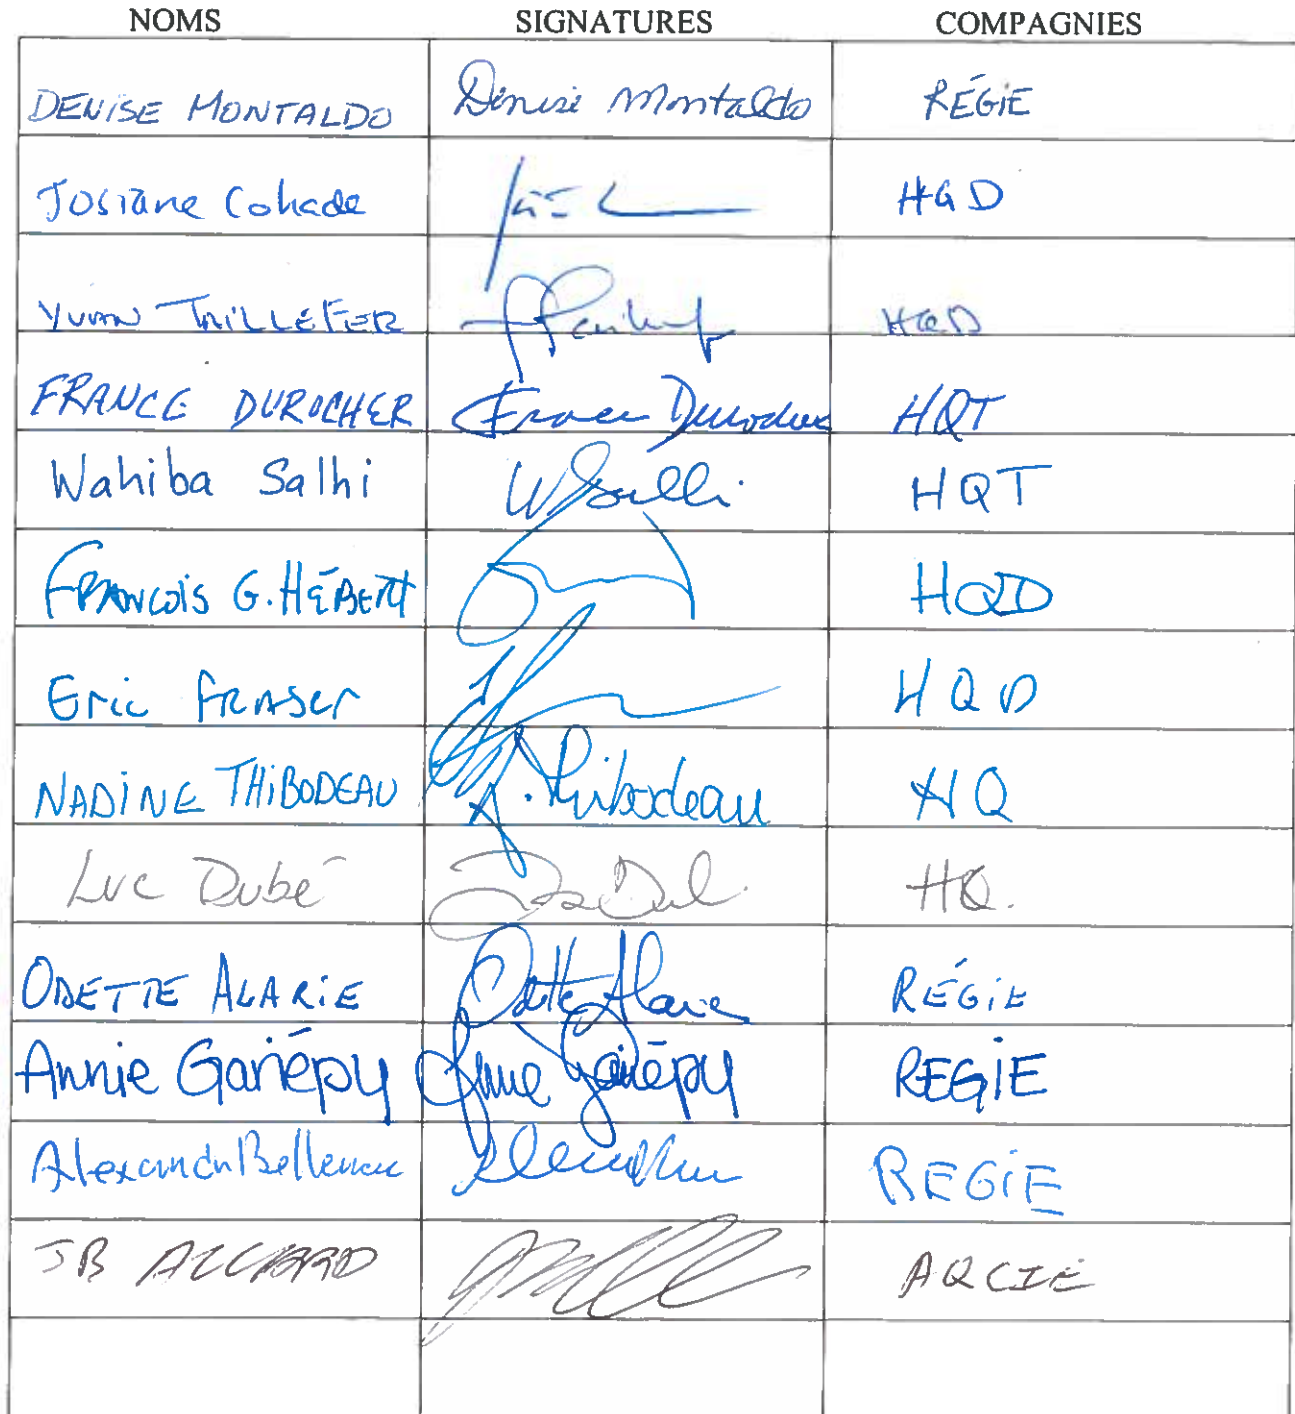 NOMS SIGNATURES COMPAGNIES
DENISE MONTALDO Denise Montaldo RÉGIE
Josiane Cohade HQD
YVAN TAILLEFER HQD
FRANCE DUROCHER France Durocher HQT
Wahiba Salhi WSalhi HQT
FRANÇOIS G. HÉBERT HQD
Eric FRASER HQD
NADINE THIBODEAU N. Thibodeau HQ
Luc Dubé HQ.
ODETTE ALARIE Odette Alarie RÉGIE
Annie Gariépy Annie Gariépy REGIE
REGIE
JB ALLARD AQCIE